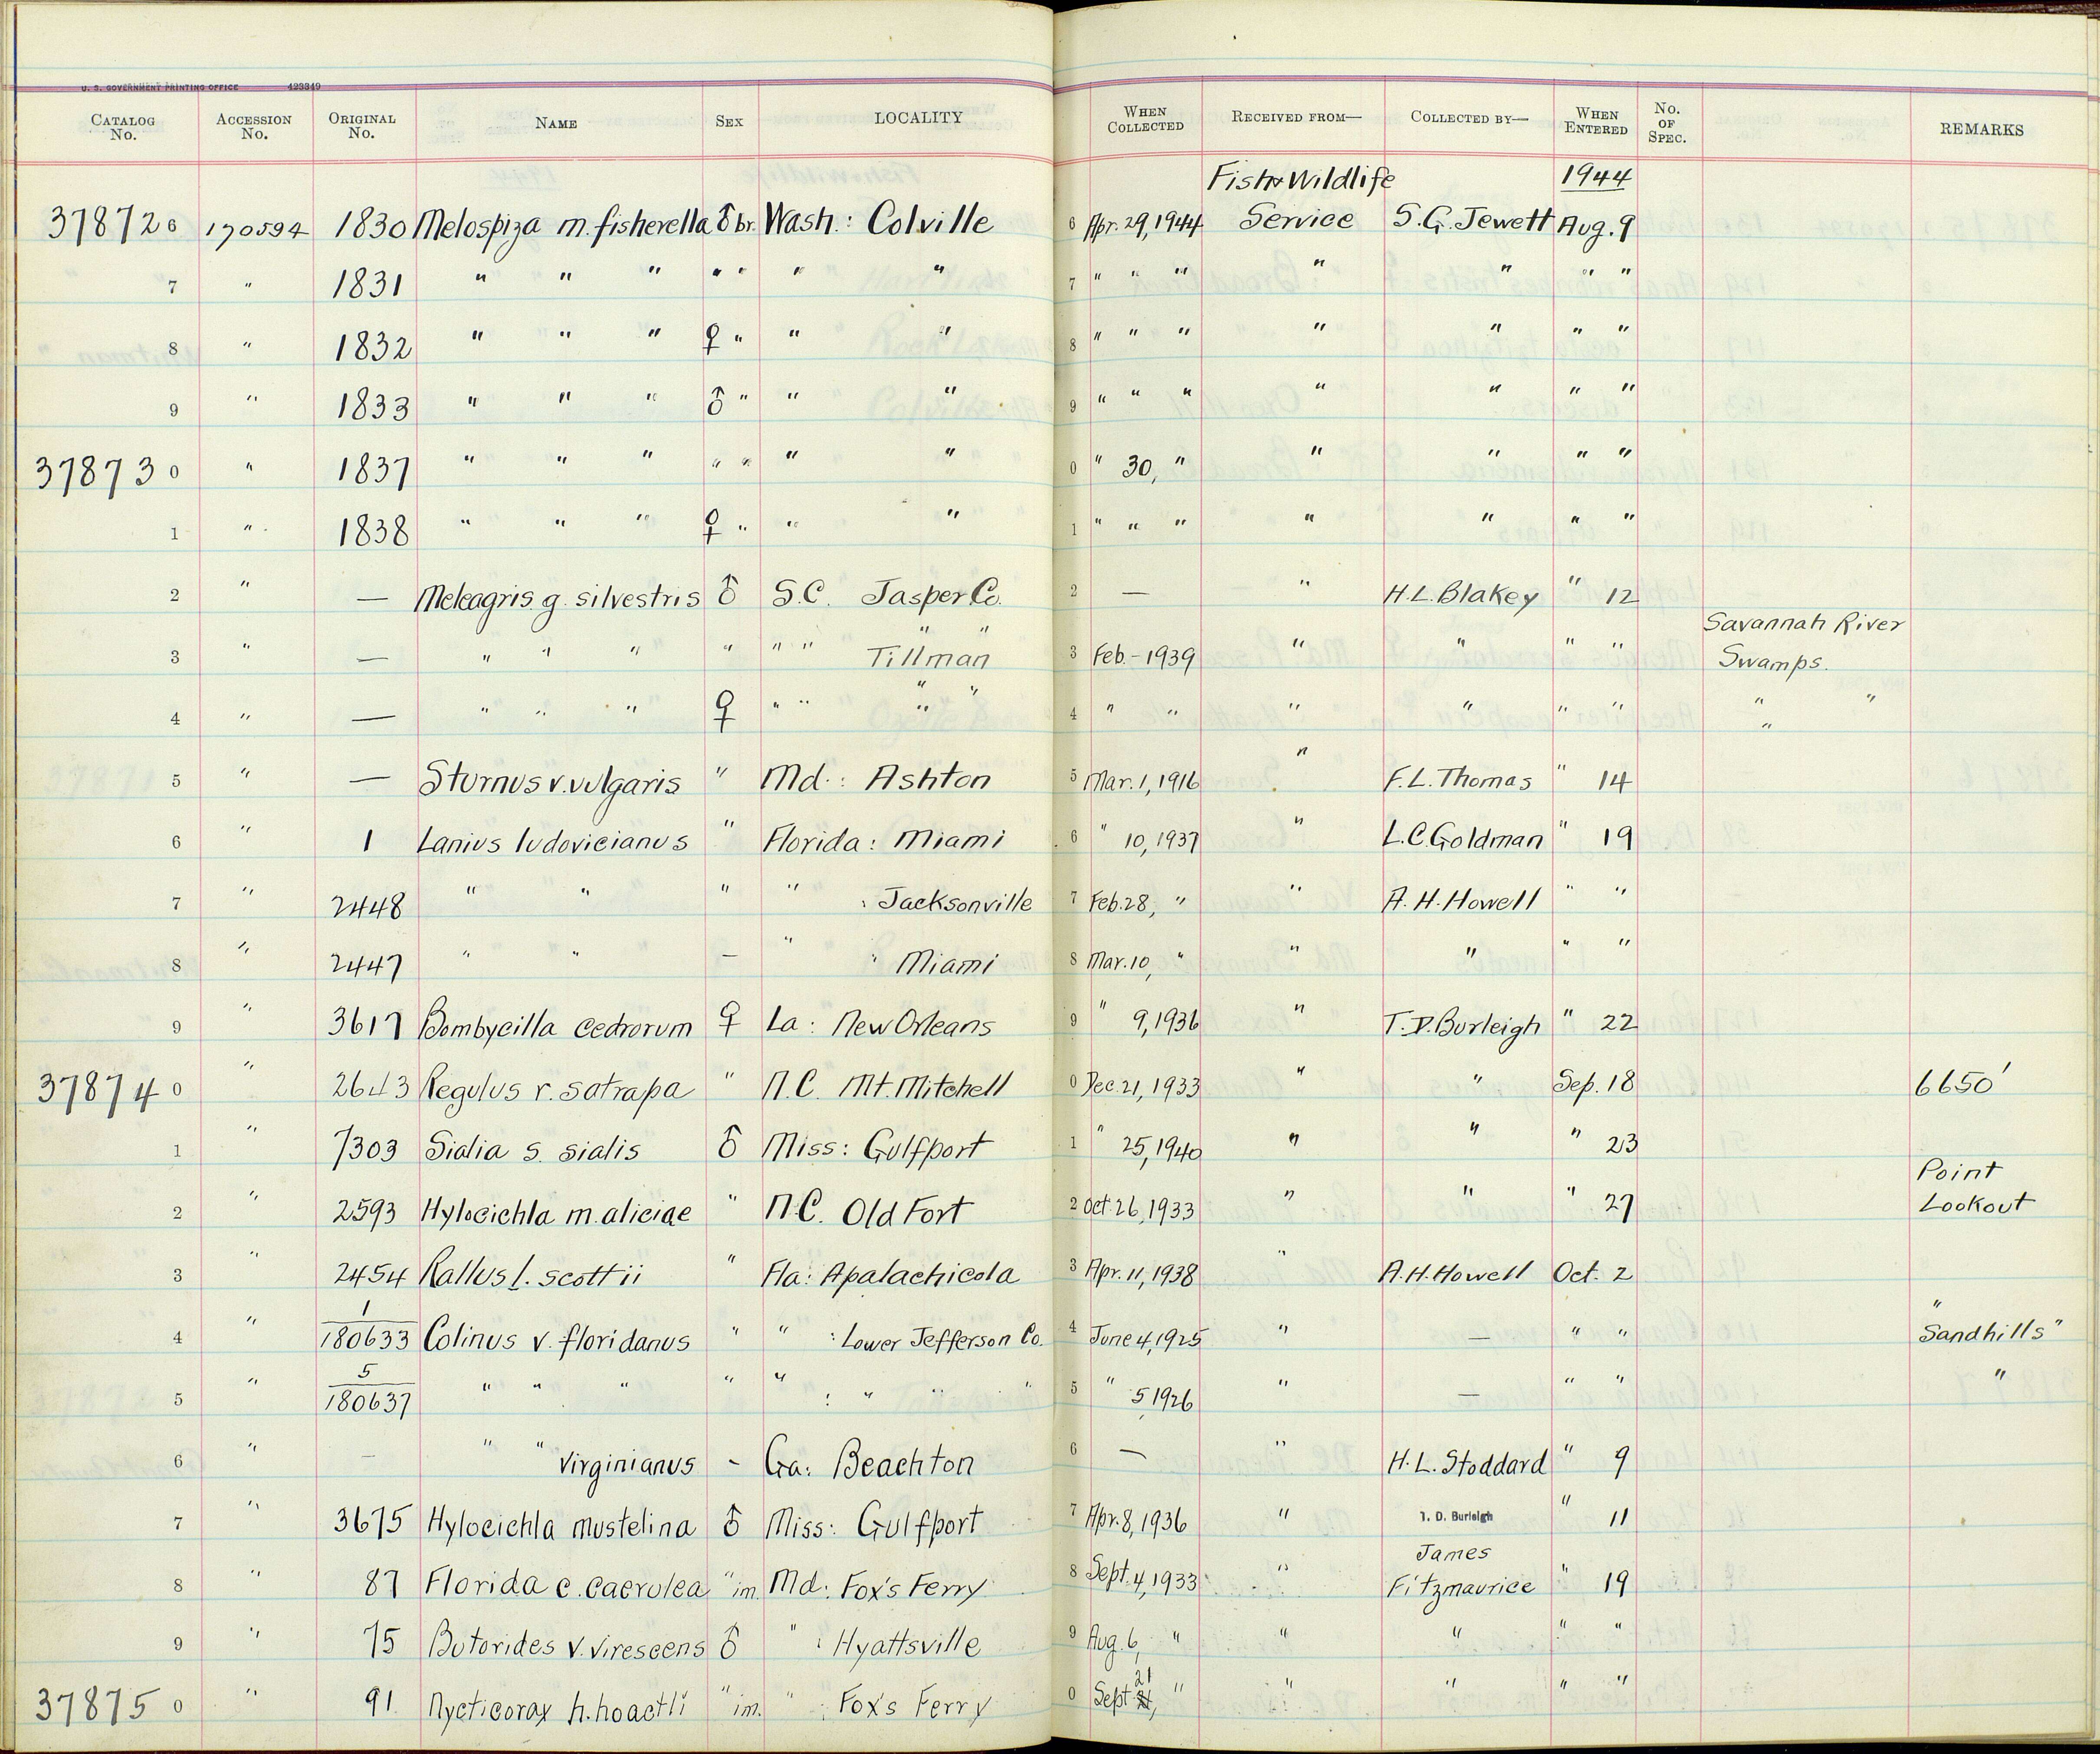 U. S. GOVERNMENT PRINTING OFFICE 423349
CATALOG No. ACCESSION No. ORIGINAL No. NAME SEX LOCALITY WHEN COLLECTED RECEIVED FROM— COLLECTED BY— WHEN ENTERED No. OF SPEC. REMARKS
Fish & Wildlife 1944
378726 170594 1830 Melospiza m. fisherella ♂ br. Wash.: Colville 6 Apr. 29, 1944 Service S. G. Jewett Aug. 9
7 " 1831 " " " " " " " 7 " " " " " " "
8 " 1832 " " " ♀ " " " 8 " " " " " " "
9 " 1833 " " " ♂ " " " 9 " " " " " " "
378730 " 1837 " " " " " " " 0 " 30, " " " " "
1 " 1838 " " " ♀ " " " 1 " " " " " " "
2 " — Meleagris g. silvestris ♂ S.C. Jasper Co. 2 — " H. L. Blakey " 12
" " Savannah River
3 " — " " " " " " Tillman 3 Feb. – 1939 " " " " Swamps.
4 " — " " " ♀ " " " " " 4 " " " " " " " " "
5 " — Sturnus v. vulgaris " Md.: Ashton 5 Mar. 1, 1916 " F. L. Thomas " 14
6 " 1 Lanius ludovicianus " Florida: Miami 6 " 10, 1937 " L. C. Goldman " 19
7 " 2448 " " " " : Jacksonville 7 Feb. 28, " " A. H. Howell " "
8 " 2447 " " — " " Miami 8 Mar. 10, " " " " "
9 " 3617 Bombycilla cedrorum ♀ La: New Orleans 9 " 9, 1936 " T. D. Burleigh " 22
378740 " 2643 Regulus r. satrapa " N.C. Mt. Mitchell 0 Dec. 21, 1933 " " Sep. 18 6650'
1 " 7303 Sialia s. sialis ♂ Miss: Gulfport 1 " 25, 1940 " " " 23
Point
2 " 2593 Hylocichla m. aliciae " N.C. Old Fort 2 Oct. 26, 1933 " " " 27 Lookout
3 " 2454 Rallus l. scottii " Fla: Apalachicola 3 Apr. 11, 1938 " A. H. Howell Oct. 2
1
4 " 180633 Colinus v. floridanus " " : Lower Jefferson Co. 4 June 4, 1925 " — " " "Sandhills"
5
5 " 180637 " " " " " : " " " 5 " 5 1926 " — " " "
6 " — " " virginianus – Ga: Beachton 6 — " H. L. Stoddard " 9
7 " 3675 Hylocichla mustelina ♂ Miss: Gulfport 7 Apr. 8, 1936 " T. D. Burleigh " 11
James
8 " 87 Florida c. caerulea " im. Md: Fox's Ferry 8 Sept. 4, 1933 " Fitzmaurice " 19
9 " 75 Butorides v. virescens ♂ " : Hyattsville 9 Aug. 6, " " " " "
21
378750 " 91 Nycticorax h. hoactli " im. " : Fox's Ferry 0 Sept. " " " " "